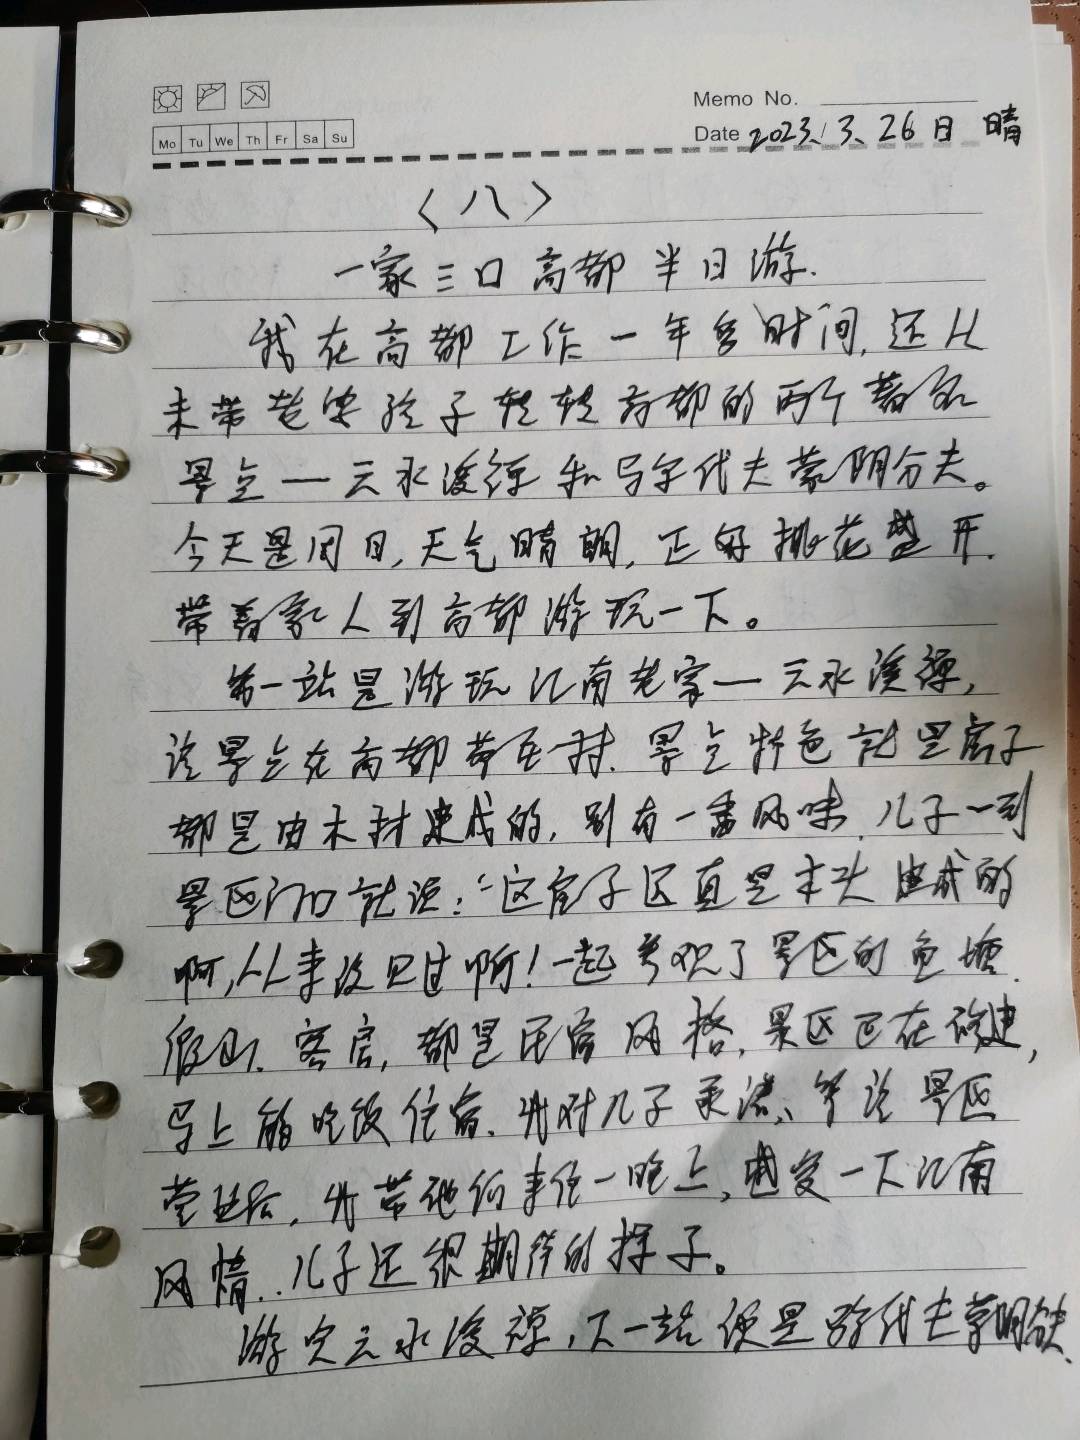 Memo No.
Mo Tu We Th Fr Sa Su
Date 2023、3、26日 晴
〈八〉
一家三口高都半日游.
我在高都工作一年多时间,还从
未带老婆孩子转转高都的两个著名
景点一云水溪禅和马尔代夫蒙阴分夫。
今天是周日,天气晴朗,正好桃花盛开.
带着家人到高都游玩一下。
第一站是游玩江南老家一云水溪禅,
该景点在高都 村.景点特色就是房子
都是由木材建成的,别有一番风味.儿子一到
景区门口就说:“这房子还真是木头建成的
啊,从来没见过啊!一起参观了景区的鱼塘.
假山.客房,都是民宿风格,景区正在修建,
马上能吃饭住宿.我对儿子承诺、等该景区
营业后,我带他们来住一晚上,感受一下江南
风情..儿子还很期待的样子。
游完云水溪禅,下一站便是 代夫蒙阴